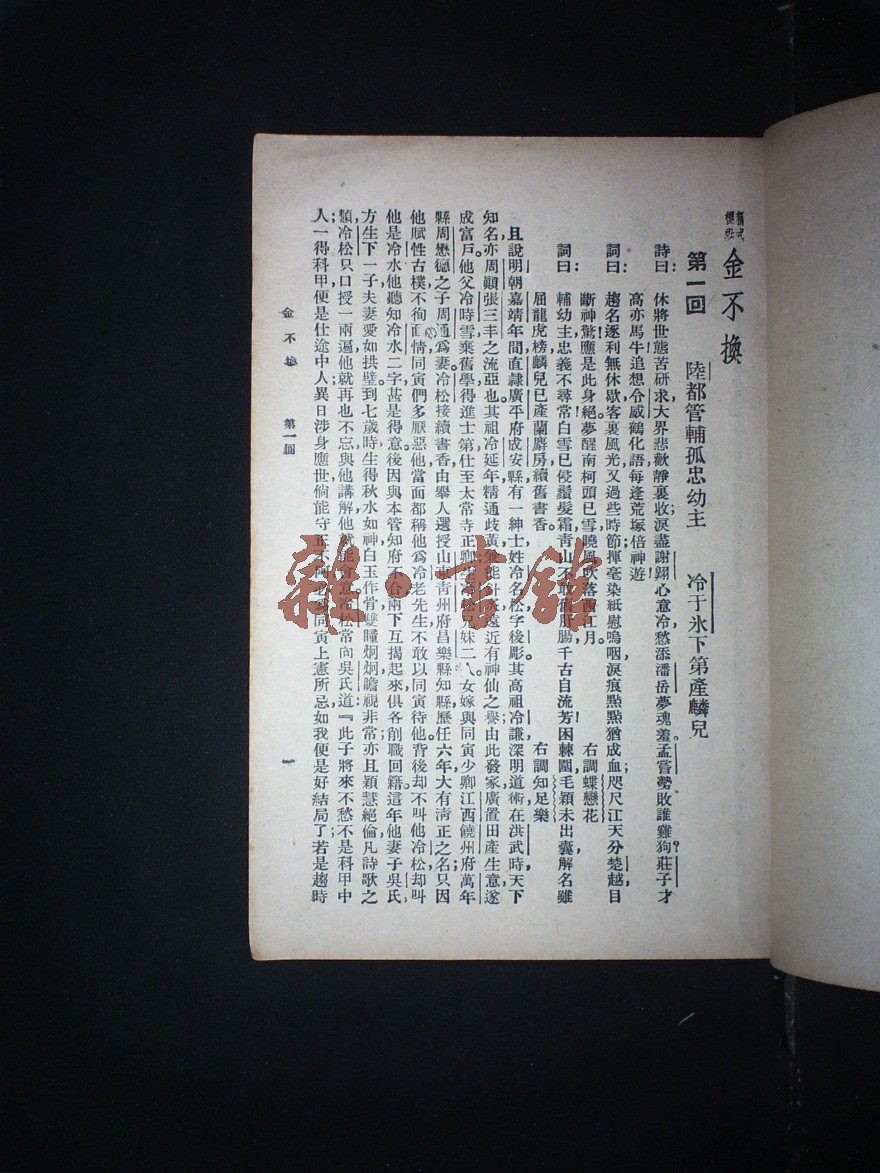 金不換
第一回　陸都管輔孤忠幼主　冷于氷下第產麟兒
詩曰：　休將世態苦研求大界悲歡靜裏收淚盡謝翱心意冷愁添潘岳夢魂羞孟嘗勢敗誰雞狗？莊子才
高亦馬牛追想令威鶴化語每逢荒塚倍神遊
詞曰：　趨名逐利無休歇客裏風光又過些時節揮毫染紙慰嗚咽淚痕點點猶成血；咫尺江天分楚越目
斷神驚應是此身絕夢醒南柯頭已雪曉風吹落西江月。　右調蝶戀花
詞曰：　輔幼主忠義不尋常！白雪已侵鬢髮霜青山不改舊肝腸千古自流芳困棘闈毛穎未出囊解名雖
屈龍虎榜麟兒已產蘭麝房續舊書香。　右調知足樂
且說明朝嘉靖年間直隸廣平府成安縣有一紳士姓冷名松字後彫其高祖冷謙深明道術在洪武時天下
知名亦周顛張三丰之流亞也。其祖冷延年精通岐黃兼能針灸遠近有神仙之譽由此發家廣置田產生意遂
成富戶他父冷時雪棄舊學得進士第仕至太常寺正卿生冷松兄妹二人女嫁與同寅少卿江西饒州府萬年
縣周懋德之子周通爲妻冷松接續書香由舉人選授山東青州府昌樂縣知縣歷任六年大有清正之名只因
他賦性古樸不徇面情同寅們多厭惡他當面都稱他爲冷老先生不敢以同寅待他。背後却不叫他冷松却叫
他是冷水他聽知冷水二字甚是得意後因與本管知府不合兩下互揭起來俱各削職回籍。這年他妻子吳氏
方生下一子夫妻愛如拱璧。到七歲時生得秋水如神白玉作骨雙瞳炯炯瞻視非常；亦且穎慧絕倫凡詩歌之
類冷松只口授一兩遍他就再也不忘與他講解他就能會意冷松常向吳氏道：『此子將來不愁不是科甲中
人；一得科甲便是仕途中人異日涉身應世倘能守正不阿必爲同寅上憲所忌如我便是好結局了若是趨時
金不換　第一回　一
雜·書館